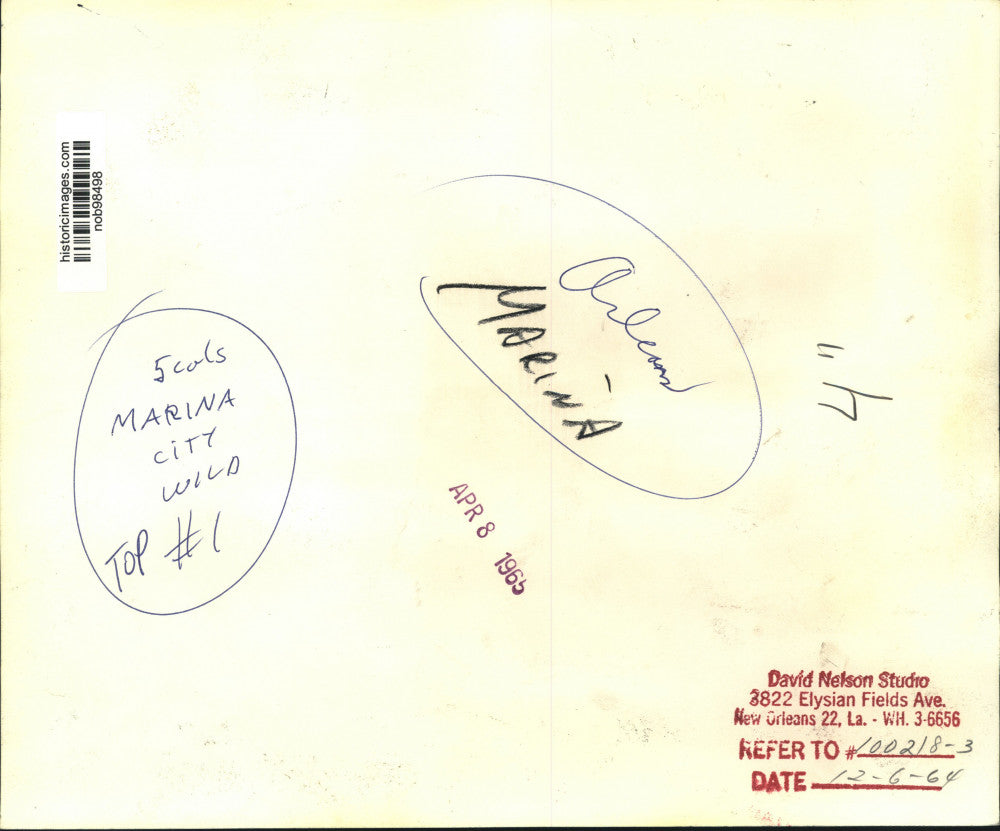 historicimages.com
nob98498
5 cols
MARINA
CITY
WILD
TOP #1
Orleans
MARINA
APR 8 1965
David Nelson Studio
3822 Elysian Fields Ave.
New Orleans 22, La. - WH. 3-6656
REFER TO #100218-3
DATE 12-6-64